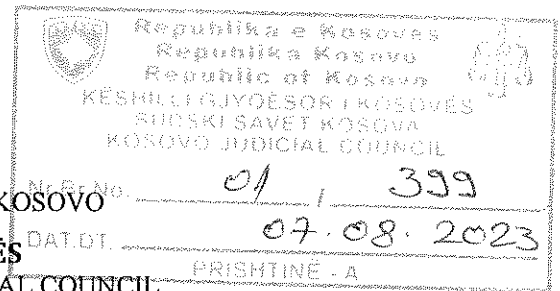 Republika e Kosovës
Republika Kosova
Republic of Kosovo
KËSHILLI GJYQËSOR I KOSOVËS
SUDSKI SAVET KOSOVA
KOSOVO JUDICIAL COUNCIL
Nr.Br.No. 01 / 399
KOSOVO
DAT.DT. 07.08.2023
ËS
PRISHTINË - A
AL COUNCIL